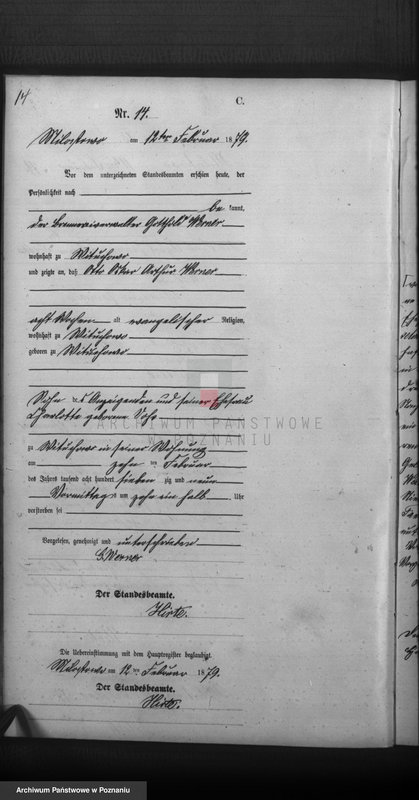 14
C.
Nr. 14.
Milostowo am 12ten Februar 1879.
Vor dem unterzeichneten Standesbeamten erschien heute, der
Persönlichkeit nach
be kannt,
der Brennereiverwalter Gotthold Werner
wohnhaft zu Mituchowo
und zeigte an, daß Otto Oskar Arthur Werner
acht Wochen alt evangelischer Religion,
wohnhaft zu Mituchowo
geboren zu Mituchowo
Sohn des Anzeigenden und seiner Ehefrau
Charlotte geborene
ARCHIWUM PAŃSTWOWE
W POZNANIU
zu Mituchowo in seiner Wohnung
am zehn ten Februar
des Jahres tausend acht hundert sieben zig und neun
Vormittags um zehn ein halb Uhr
verstorben sei
Vorgelesen, genehmigt und unterschrieben
G. Werner
Der Standesbeamte.
Hirte.
Die Uebereinstimmung mit dem Hauptregister beglaubigt.
Milostowo am 12ten Februar 1879.
Der Standesbeamte.
Hirte.
Archiwum Państwowe w Poznaniu